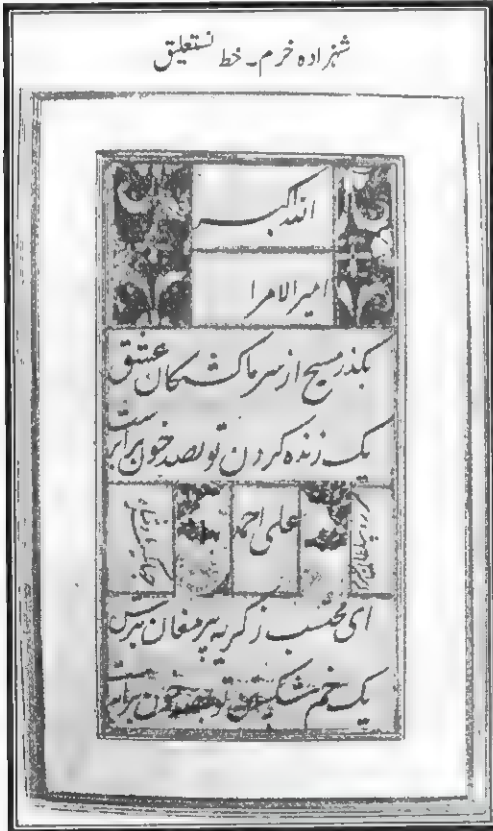 شہزادہ خرم۔ خط نستعلیق
الله اکبر
امیر الامرا
بگذر مسیح از سر ما کشتگان عشق
یک زنده کردن تو بصد خون برابرست
علی احمد
ای محتسب ز گریه پیر مغان بترس
یک خم شکستن تو بصد خون برابرست